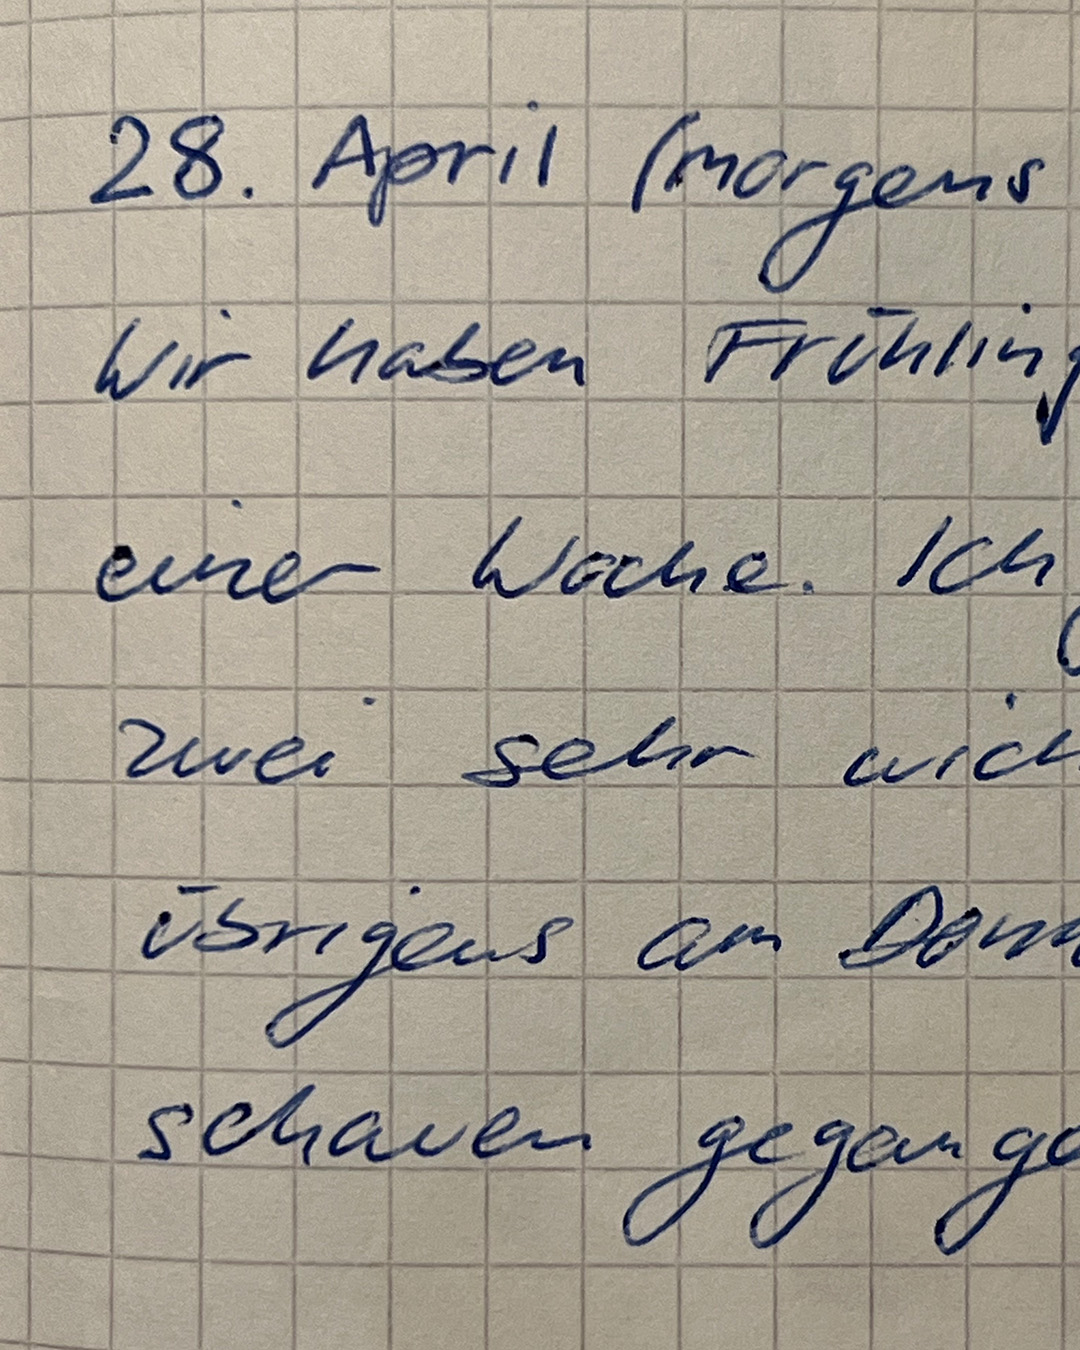 28. April (morgens
Wir haben Frühling
einer Woche. Ich
zwei sehr wich
übrigens am Donn
schauen gegange